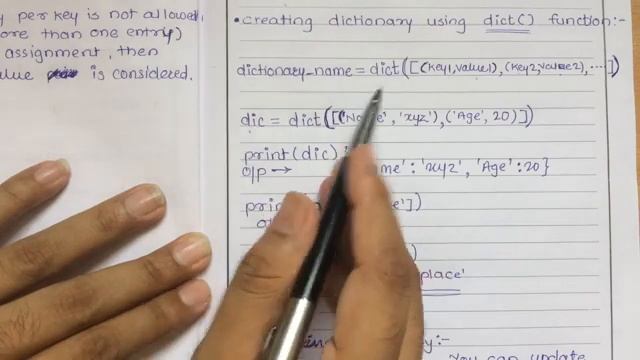 per key is not allowed
ore than one entry)
assignment, then
is considered.
• creating dictionary using dict() function:-
dictionary_name = dict([(Key1,value1),(Key2,value2),....])
dic = dict([( , 'xyz'),('Age', 20)])
print(dic)
o/p → me': 'xyz', 'Age':20}
e'])
)
place'
key:-
You can update